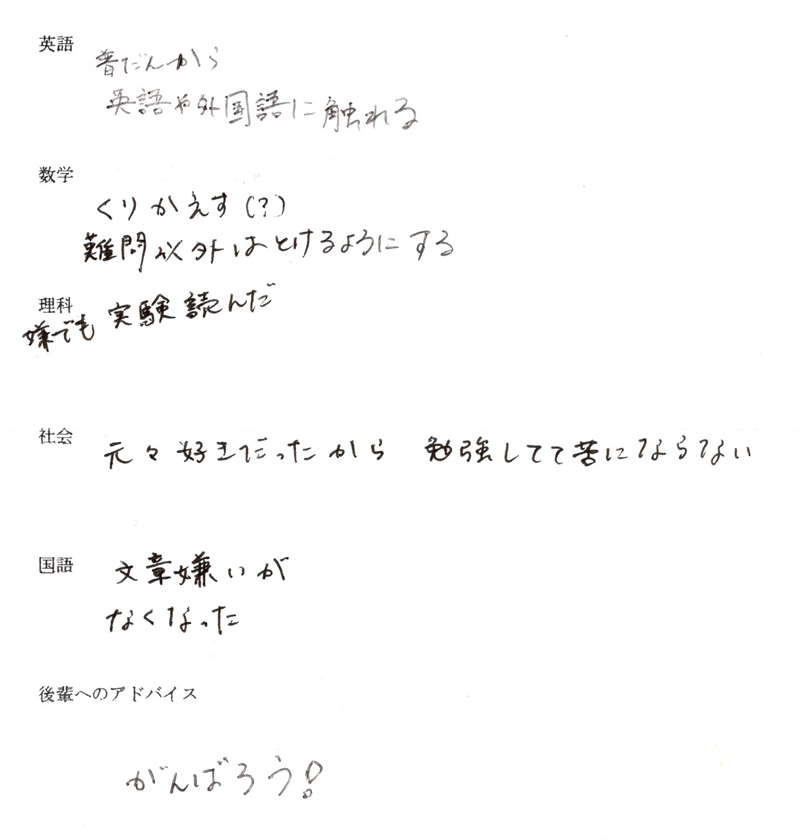 英語
普だんから
英語や外国語に触れる
数学
くりかえす(?)
難問以外はとけるようにする
理科
嫌でも 実験読んだ
社会
元々好きだったから 勉強してて苦にならない
国語
文章嫌いが
なくなった
後輩へのアドバイス
がんばろう!